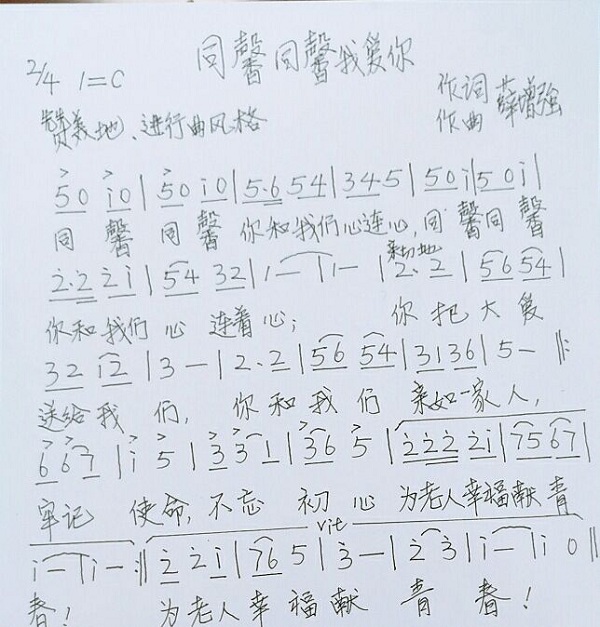 同馨同馨我爱你
2/4 1=C
作词
作曲 薛增强
赞美地、进行曲风格
5 0 i 0 | 5 0 i 0 | 5·6 5 4 | 3 4·5 | 5 0 i | 5 0 i |
同 馨 同 馨 你和我们心连心,同馨同馨
亲切地
2·2 2 i | 5 4 3 2 | 1 — | 1 — | 2·2 | 5 6 5 4 |
你和我们 心 连着心; 你 把 大 爱
3 2 1 2 | 3 — | 2·2 | 5 6 5 4 | 3 1 3 6 | 5 — ‖:
送给我 们, 你 和 我 们 亲如一家人,
6 6 7 | i 5 | 3 3 1 | 3 6 5 | 2 2 2 2 i | 7 5 6 7 |
牢记 使命,不忘 初 心 为老人幸福献青
vit
i — | i — :‖ 2 2 i | 7 6 5 | 3 — | 2 3 | i — | i 0 ‖
春! 为老人幸 福献 青 春!